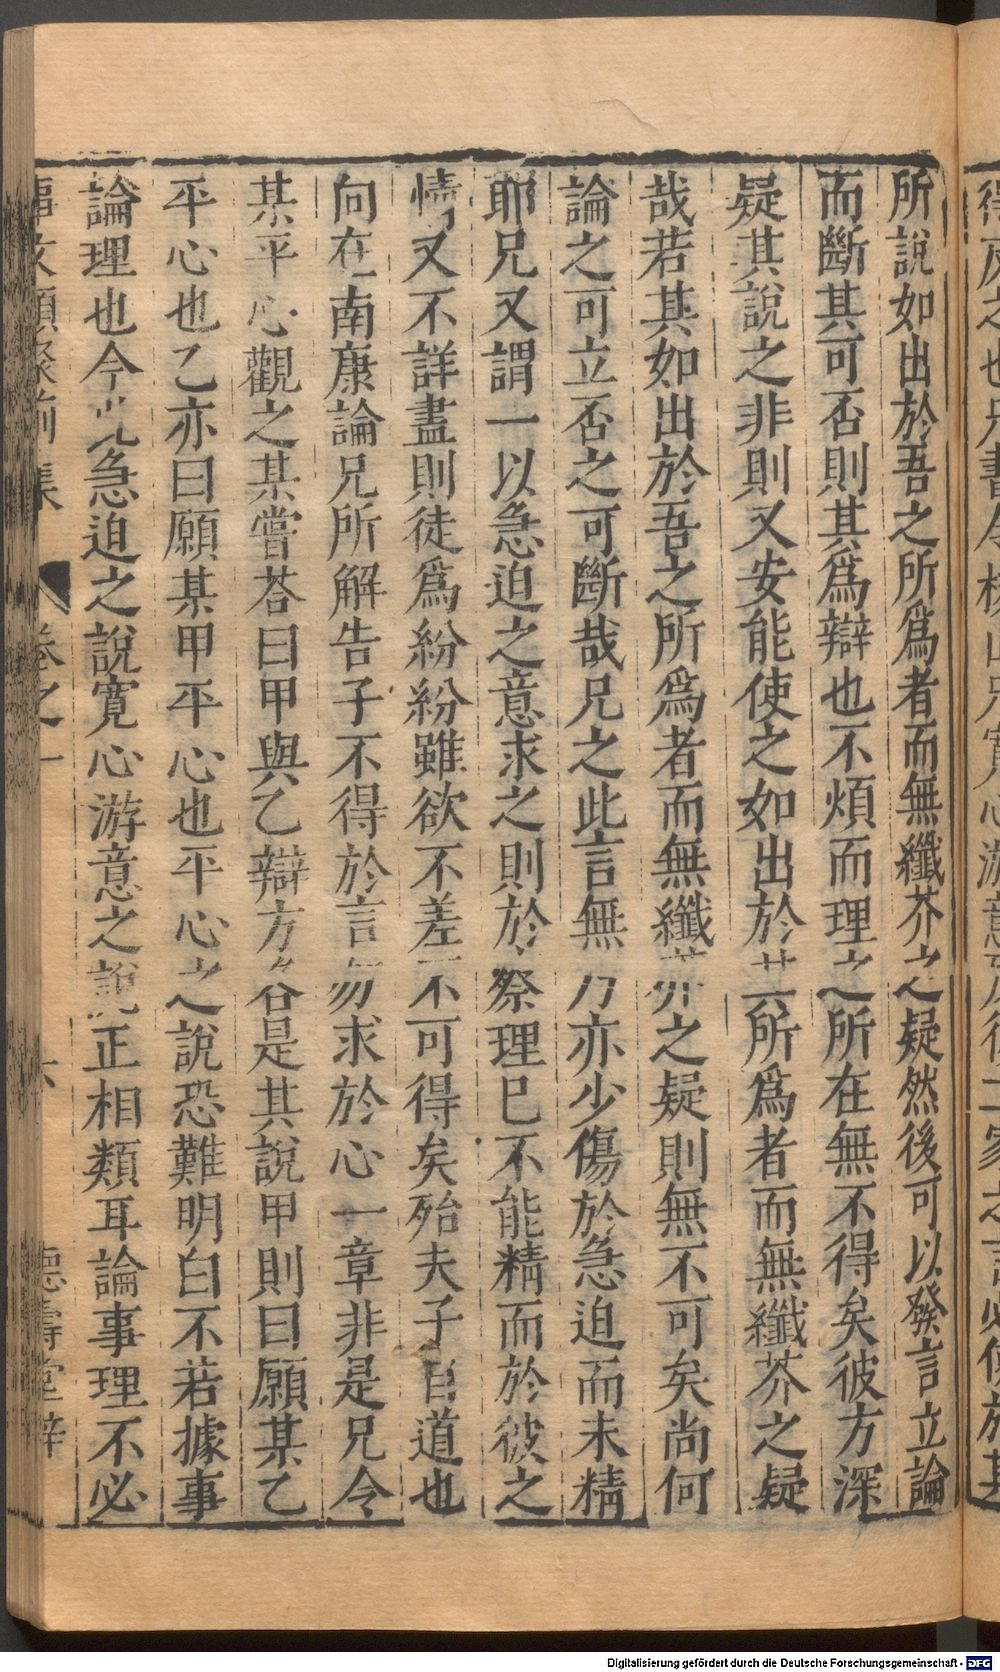 得反之也
所說如出於吾之所爲者而無纖芥之疑然後可以發言立論
而斷其可否則其爲辯也不煩而理之所在無不得矣彼方深
疑其說之非則又安能使之如出於其所爲者而無纖芥之疑
哉若其如出於吾之所爲者而無纖芥之疑則無不可矣尚何
論之可立否之可斷哉兄之此言無乃亦少傷於急迫而未精
耶兄又謂一以急迫之意求之則於察理已不能精而於彼之
情又不詳盡則徒爲紛紛雖欲不差不可得矣殆夫子自道也
向在南康論兄所解告子不得於言勿求於心一章非是兄令
某平心觀之某嘗荅曰甲與乙辯方各是其說甲則曰願某乙
平心也乙亦曰願某甲平心也平心之說恐難明白不若據事
論理也今此急迫之說寛心游意之說正相類耳論事理不必
事文類聚前集
卷之一
六
德壽堂梓
Digitalisierung gefördert durch die Deutsche Forschungsgemeinschaft - DFG